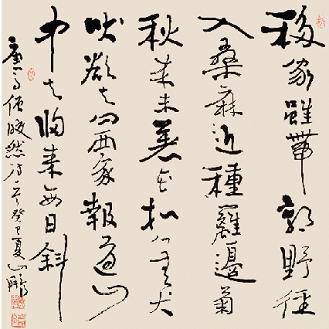 移家雖帶郭野徑
入桑麻近種籬邊菊
秋来未著花扣門無犬
吠欲去問西家報道山
中去歸来每日斜
唐高僧皎然诗 癸巳夏